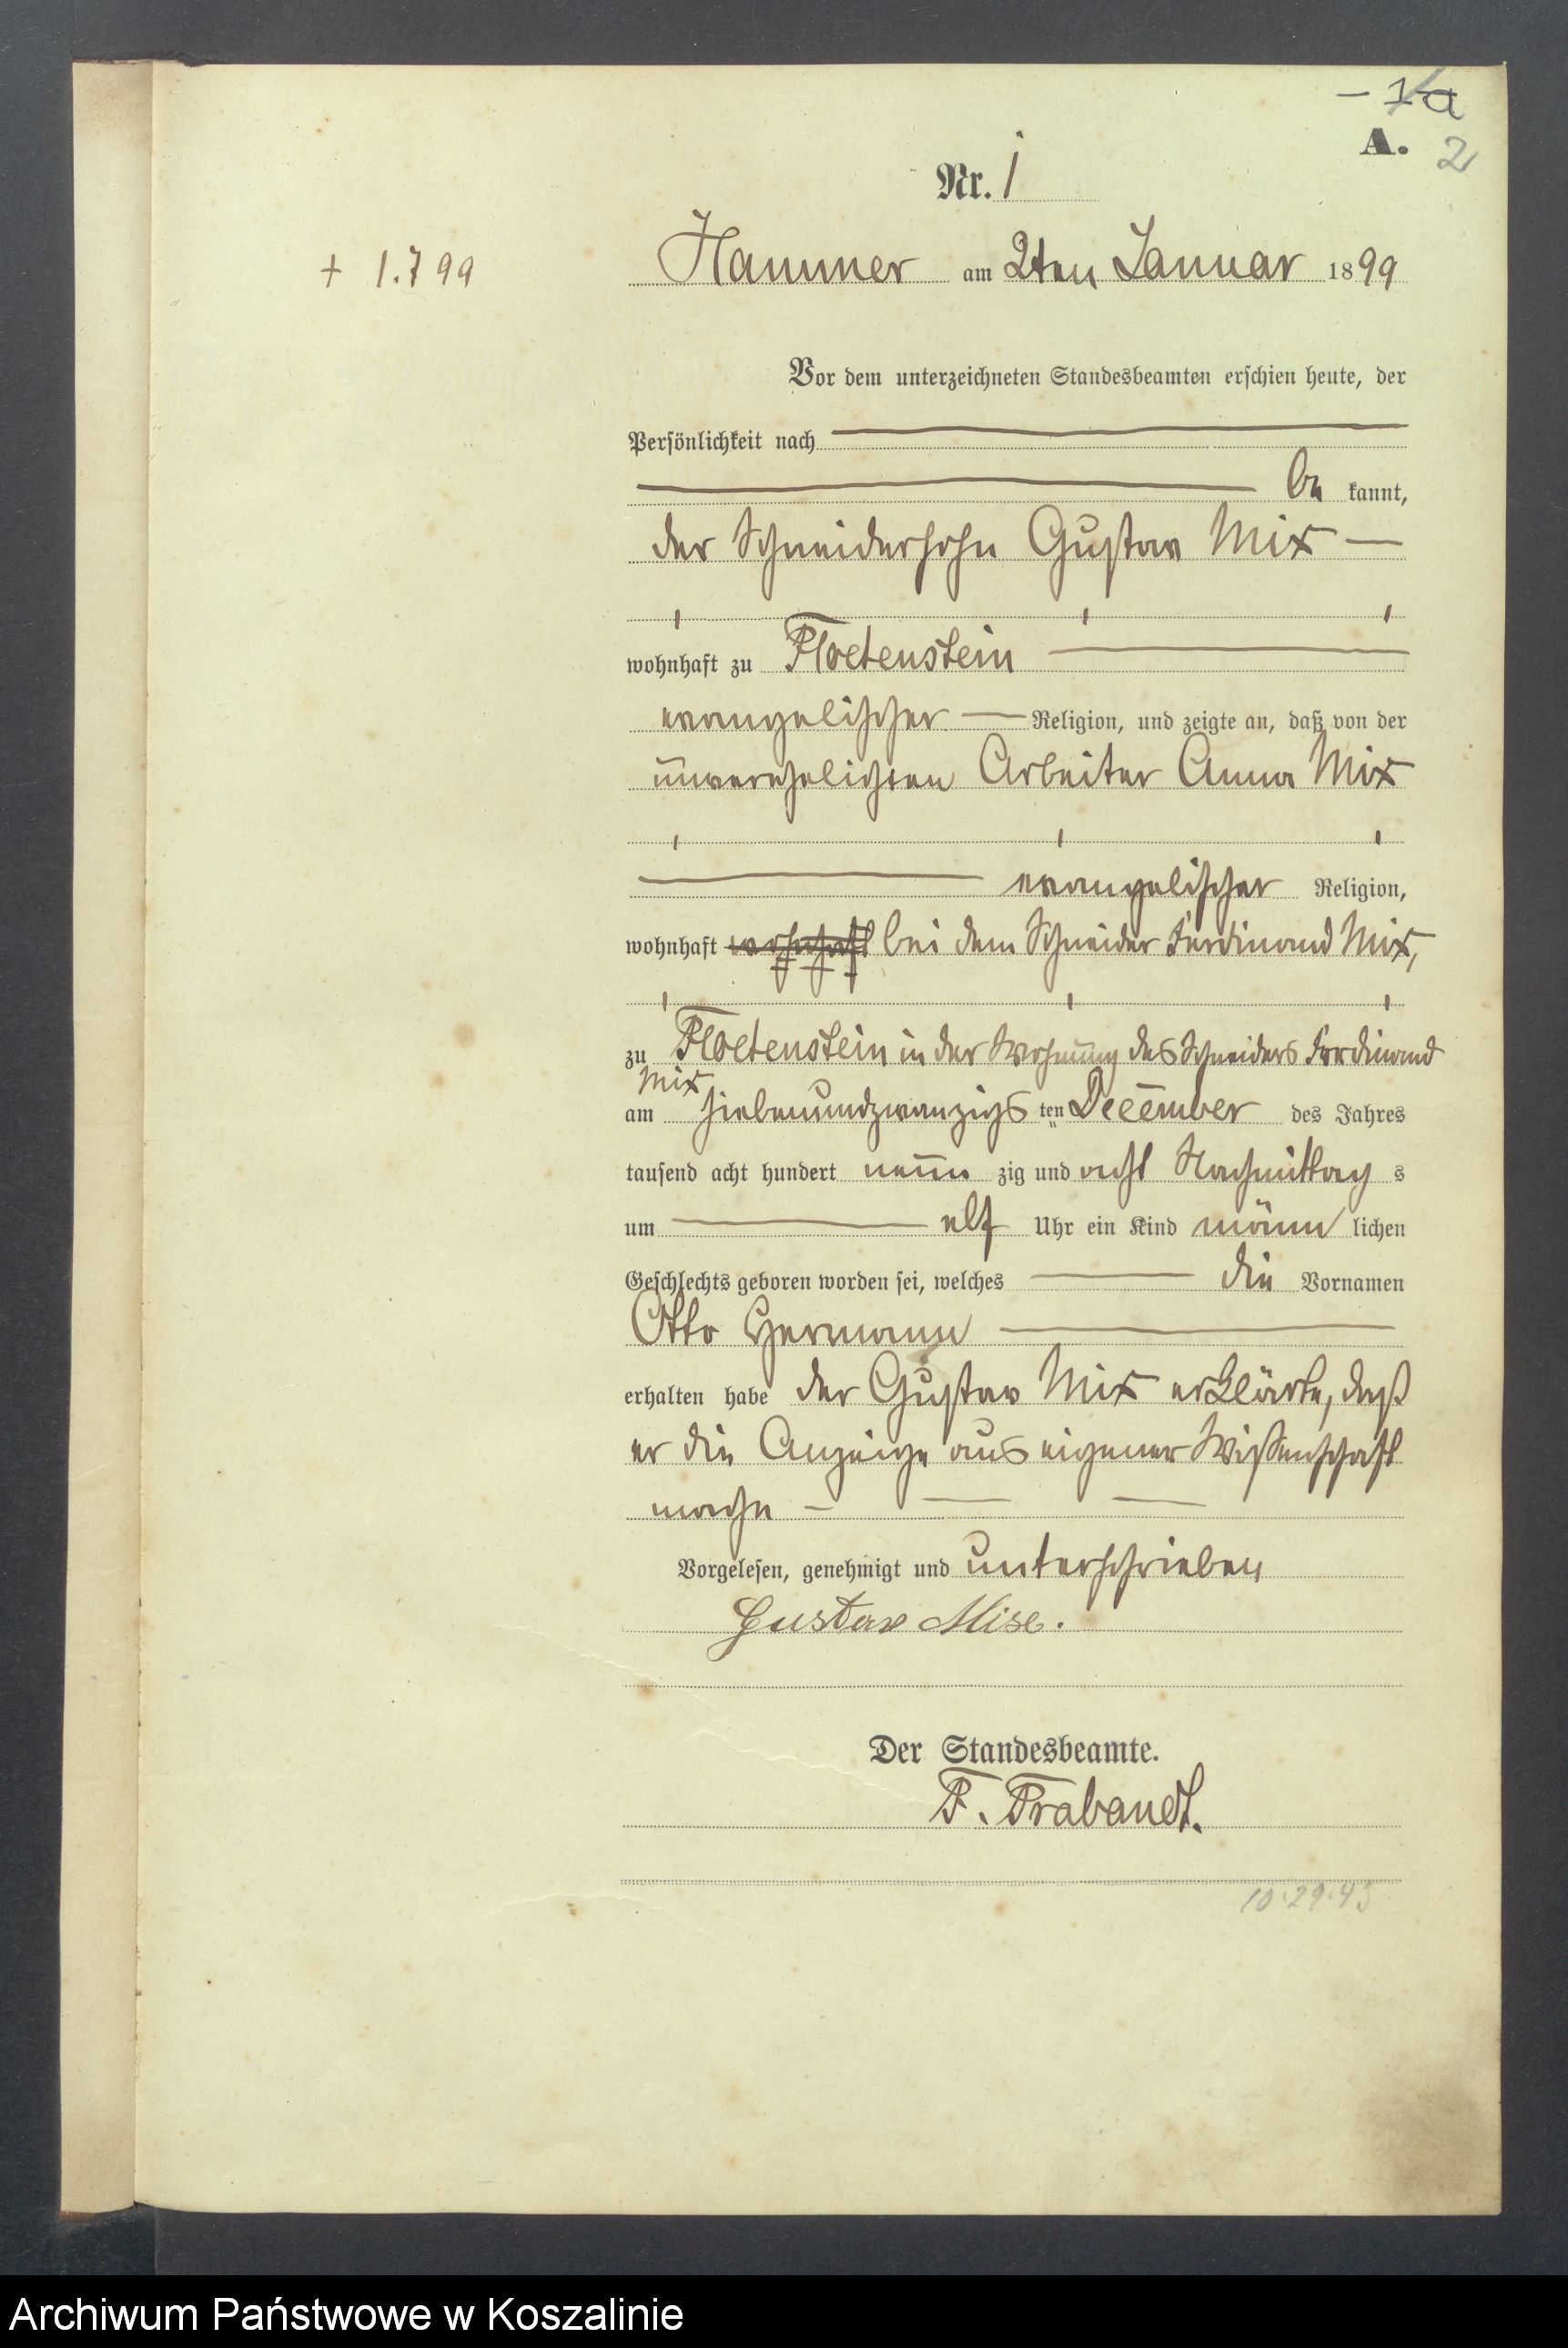 – 1a
A. 2
Nr. 1
+ 1.7 99
Hammer am 2ten Januar 1899
Vor dem unterzeichneten Standesbeamten erschien heute, der
Persönlichkeit nach
be kannt,
der Schneidersohn Gustav Mix —
wohnhaft zu Floetenstein
evangelischer — Religion, und zeigte an, daß von der
unverehelichten Arbeiter Anna Mix
evangelischer Religion,
wohnhaft wohnhaft bei dem Schneider Ferdinand Mix,
zu Floetenstein in der Wohnung des Schneiders Ferdinand
Mix
am siebenundzwanzigs ten December des Jahres
tausend acht hundert neun zig und acht Nachmittag s
um elf Uhr ein Kind männ lichen
Geschlechts geboren worden sei, welches die Vornamen
Otto Hermann
erhalten habe der Gustav Mix erklärte, daß
er die Anzeige aus eigener Wissenschaft
mache –
Vorgelesen, genehmigt und unterschrieben
Gustav Mix.
Der Standesbeamte.
F. Trabandt.
10.29.43
Archiwum Państwowe w Koszalinie